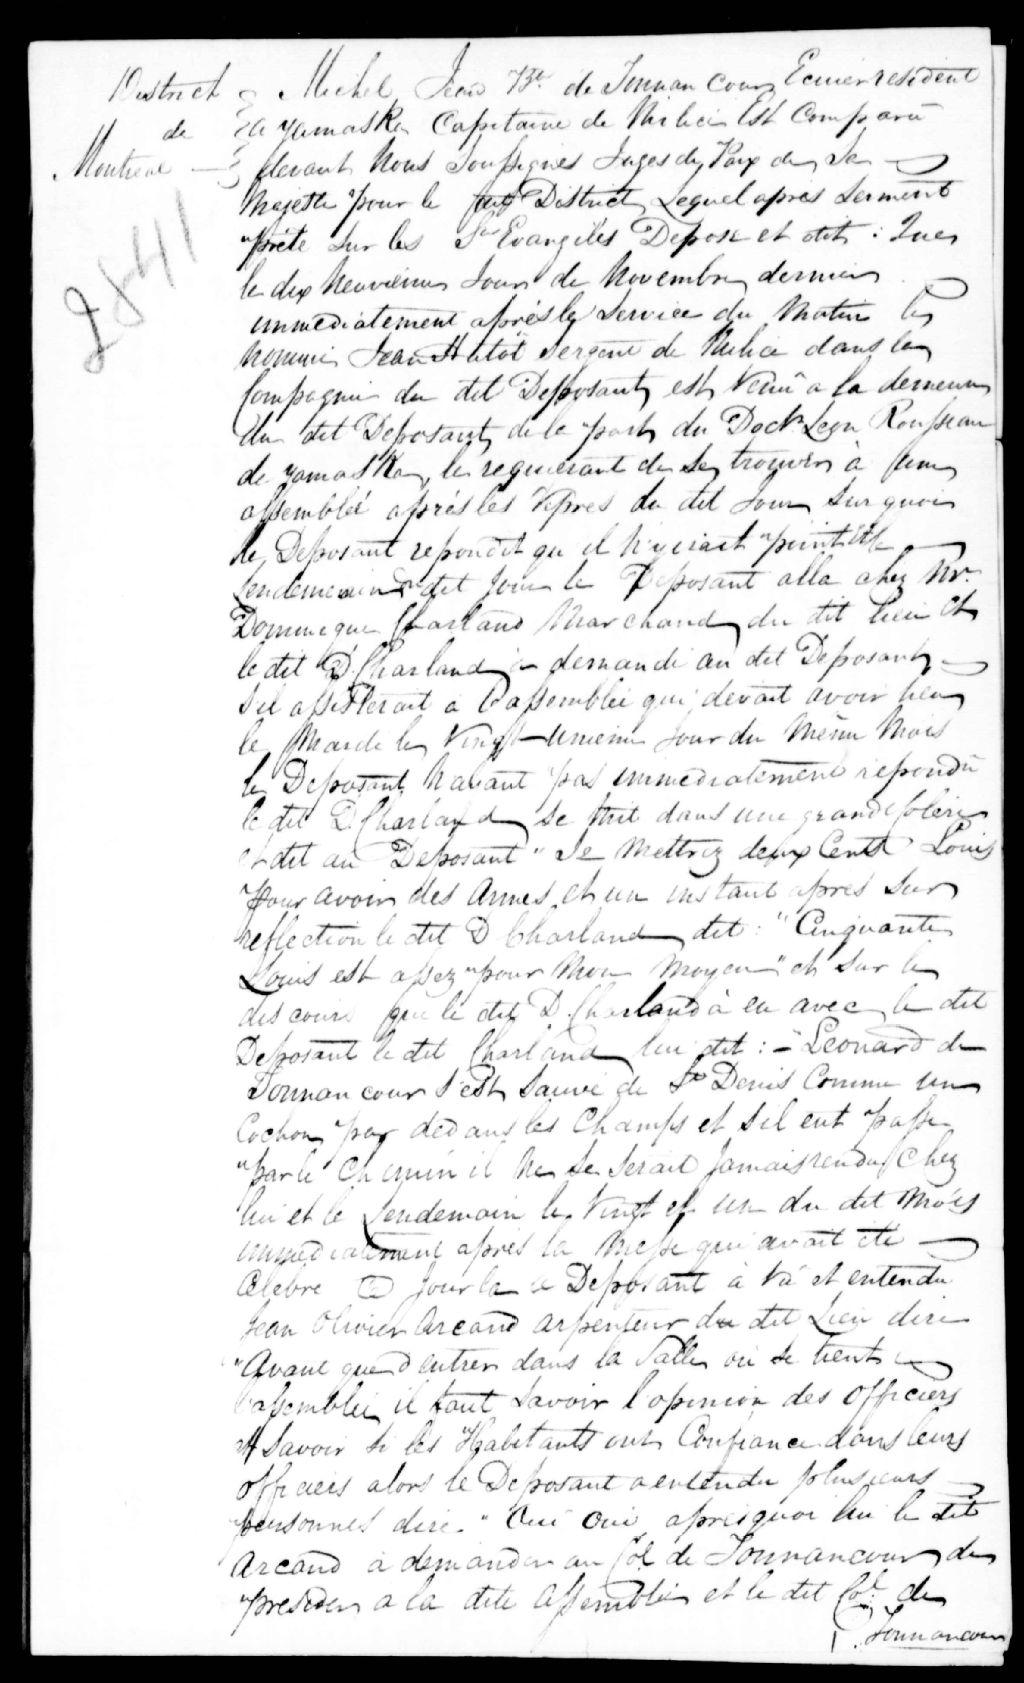 District Michel Jean Bte de Tonnancour Ecuier resident
de a yamaska Capitaine de Milice Est Comparu
Montreal devant Nous Soussignés Juges de Paix de Sa
Majesté pour le dit District Lequel apres Serment
2841
prété Sur les Sts Evangiles Depose et dit : Que
le dix Neuvieme Jour de Novembre dernier
immediatement après le Service du Matin le
Nommé Jean Hutôt Sergent de Milice dans la
Compagnie du dit Deposant est Venu a la demeure
du dit Deposant de la part du Doctr Leon Rousseau
de yamaska, le requerant de se trouver à une
assemblée après les Vepres du dit Jour Sur quoi
le Deposant repondit qu il N'yirait point et le
Lendemain du dit Jour le Deposant alla chez Mr.
Dominique Charland Marchand du dit lieu et
le dit D. Charland a demandé au dit Deposant
S'il assisterait a l'assemblée qui devait avoir lieu
le Mardi le Vingt-unieme Jour du Même Mois
le Deposant N'aiant pas immediatement repondu
le dit D. Charland se mit dans une grande colere
et dit au Deposant " Je Mettrez deux Cents Louis
Pour avoir des Armes et un instant apres Sur
reflection le dit D Charland dit : " Cinquante
Louis est assez pour Mon Moyen " et Sur le
discours que le dit D. Charland à eu avec le dit
Deposant le dit Charland lui dit : - Leonard de
Tonnancour S'est Sauvé de St Denis Comme un
Cochon par dedans les Champs et S'il eut passé
par le Chemin il Ne Se Serait Jamais rendu Chez
lui et le Lendemain le Vingt et un du dit Mois
immediatement après la Messe qui avait été
Celebré Ce Jour la le Deposant à Vû et entendu
Jean Olivier Arcand arpenteur du dit Lieu dire
"Avant que d'entrer dans la Salle où se tient
l'assemblée il faut Savoir l'opinion des Officiers
et Savoir Si les Habitants ont Confiance dans leurs
officiers alors le Deposant a entendu plusieurs
personnes dire. " Oui Oui apres quoi lui le dit
Arcand à demander au Col. de Tonnancour de
presider a la dite Assemblée et le dit Col. de
Tonnancour